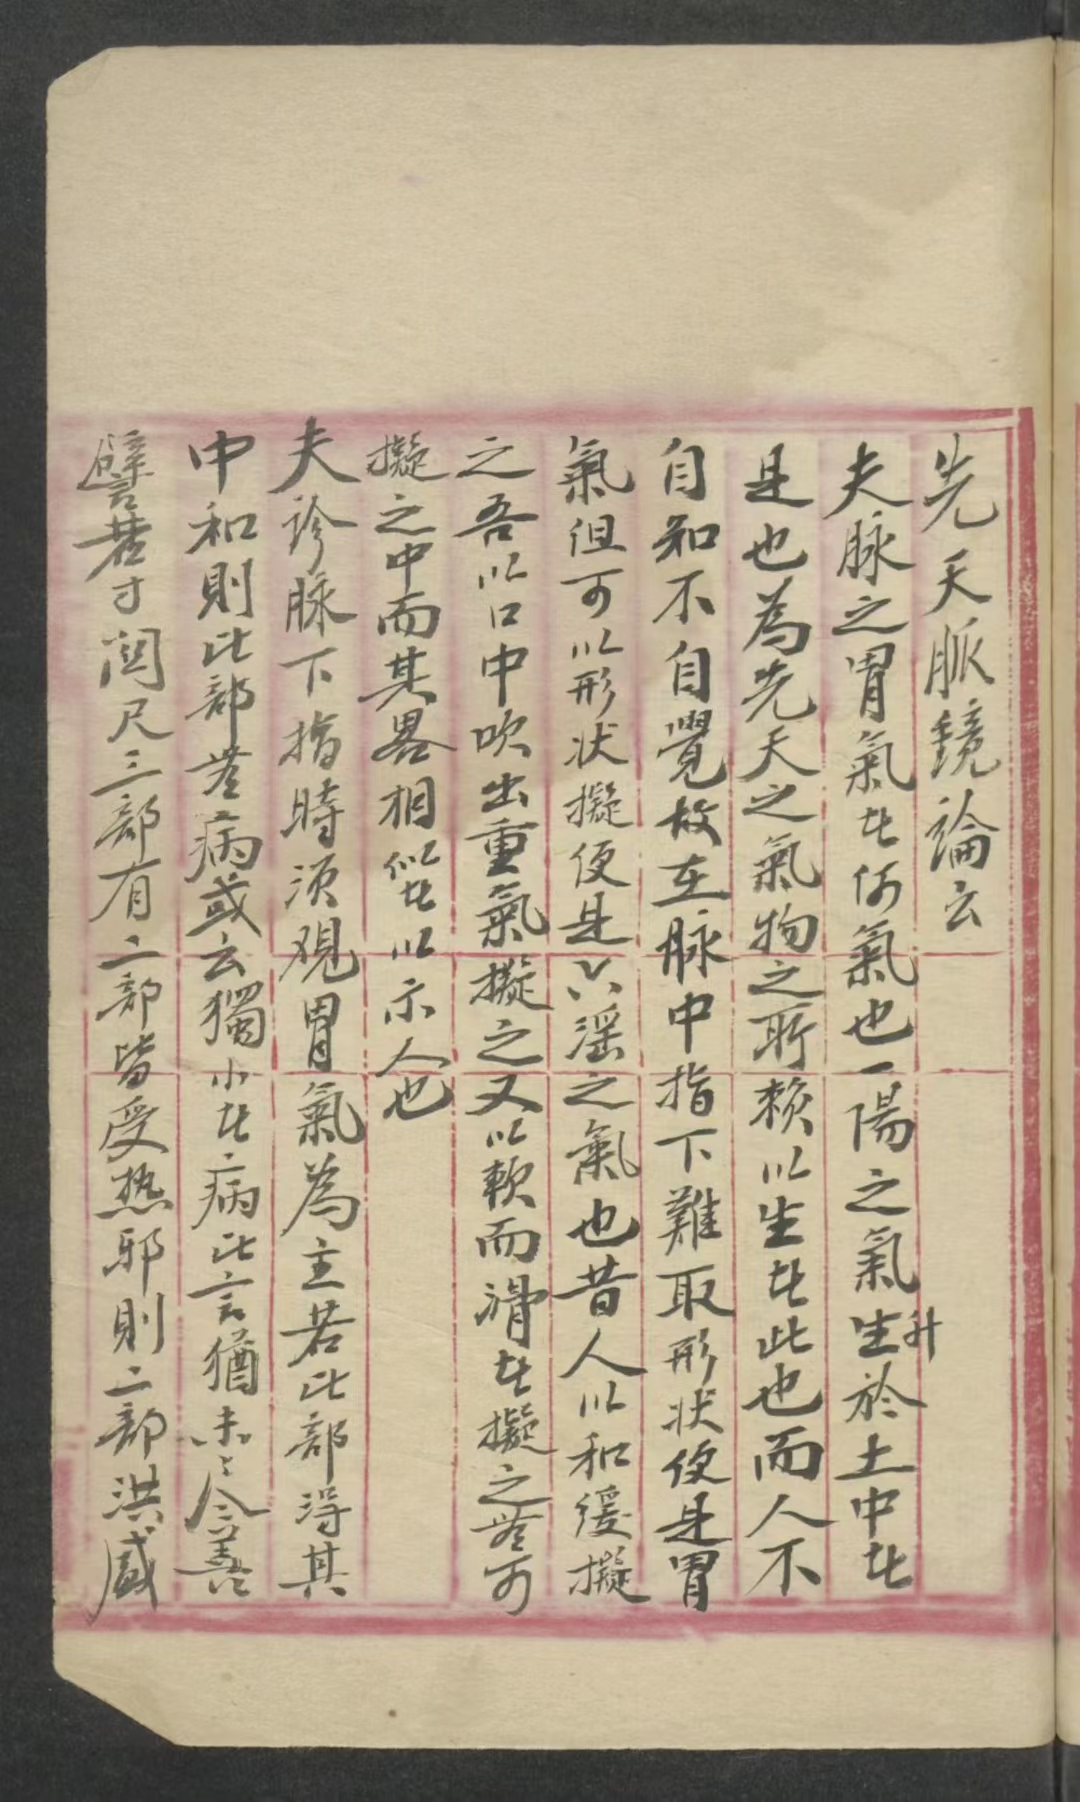 先天脈鏡論云
夫脉之胃氣者何氣也一陽之氣生升於土中者
是也為先天之氣物之所賴以生者此也而人不
自知不自覺故在脉中指下難取形狀便是胃
氣但可以形狀擬便是六淫之氣也昔人以和緩擬
之吾以口中吹出重氣擬之又以軟而滑者擬之無可
擬之中而其畧相似者以示人也
夫診脉下指時須覌胃氣為主若此部得其
中和則此部無病或云獨小者病此言猶未盡善
譬若寸関尺三部有二部皆受热邪則二部洪盛